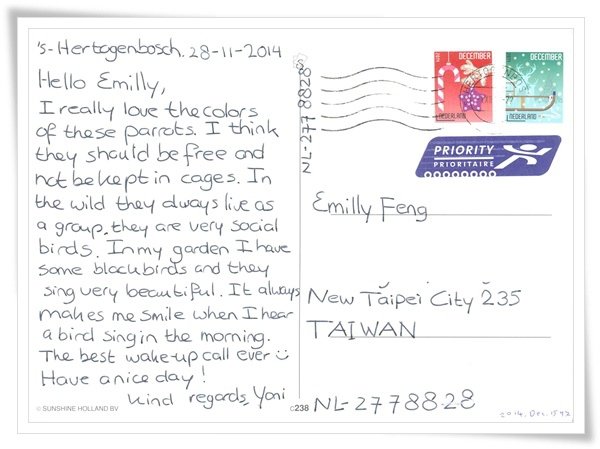 's-Hertogenbosch. 28-11-2014
Hello Emilly,
I really love the colors
of these parrots. I think
they should be free and
not be kept in cages. In
the wild they always live as
a group. they are very social
birds. In my garden I have
some blackbirds and they
sing very beautiful. It always
makes me smile when I hear
a bird sing in the morning.
The best wake-up call ever ☺
Have a nice day!
Kind regards, Yoni
© SUNSHINE HOLLAND BV
C238
NL-2778828
DECEMBER
NEDERLAND
DECEMBER
NEDERLAND
PRIORITY
PRIORITAIRE
Emilly Feng
New Taipei City 235
TAIWAN
NL-2778828